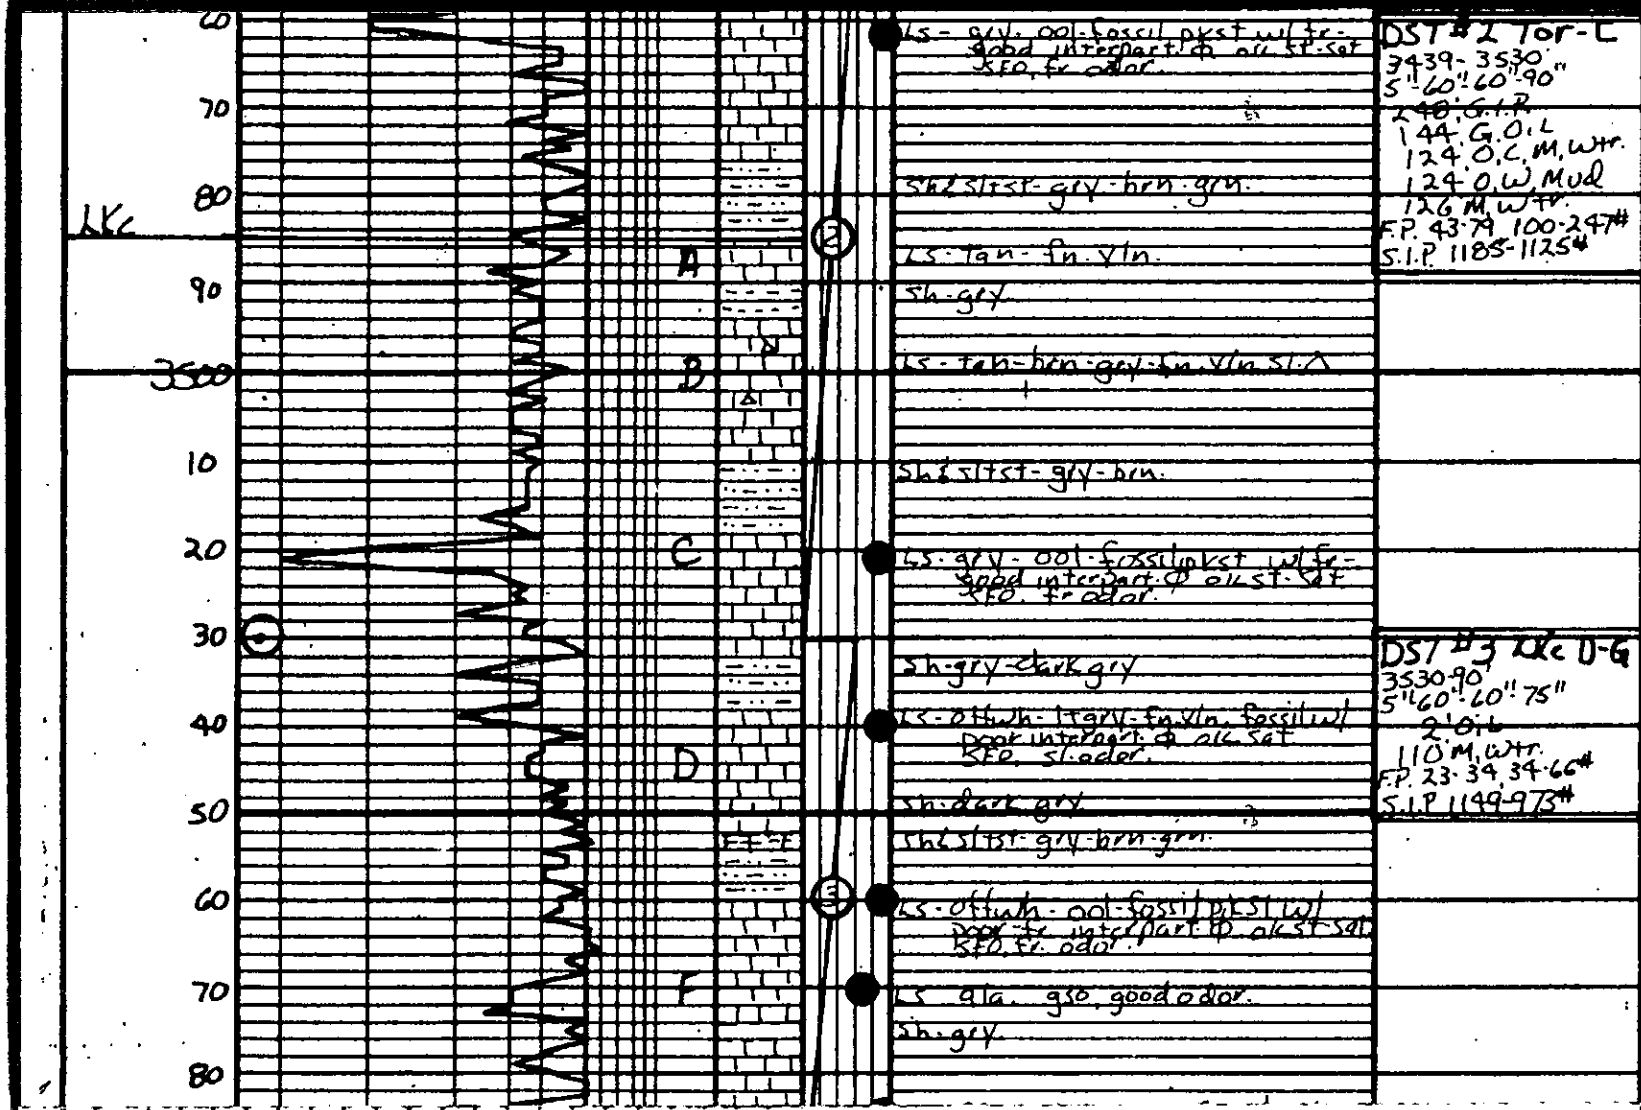 60
70
80
LKc
90
3500
10
20
30
40
50
60
70
80
A
B
C
D
F
2
3
Ls- gry- ool-fossil pkst w/ fr-
good interpart. Φ o/c st-sat
SFO, fr odor.
Sh & sltst-gry-brn-grn.
Ls-Tan-fn.xln.
Sh-gry
Ls-tan-brn-gry-fn.xln sl.△
Sh & sltst-gry-brn.
Ls-gry-ool-fossil pkst w/fr-
good interpart. Φ o/c st-sat
SFO, fr odor.
Sh-gry-dark gry
Ls-offwh-ltgry-fn.xln. fossil w/
poor interpart. Φ o/c sat
SFO, sl.odor.
Sh.dark gry
Sh & sltst-gry-brn-grn.
Ls-offwh-ool-fossil pkst w/
poor-fr. interpart Φ o/c st-sat
SFO, fr. odor.
Ls a/a. gso, good odor.
Sh-gry.
DST #2 Tor-C
3439-3530
5"-60"-60"-90"
240' G.I.P.
144' G.O.L
124' O.C.M.Wtr.
124' O.W.Mud
126' M.Wtr.
F.P. 43-79 100-247#
S.I.P 1185-1125#
DST #3 LKc D-G
3530-90'
5"60"-60"75"
2' Oil
110' M.Wtr.
F.P. 23-34, 34-66#
S.I.P 1149-973#